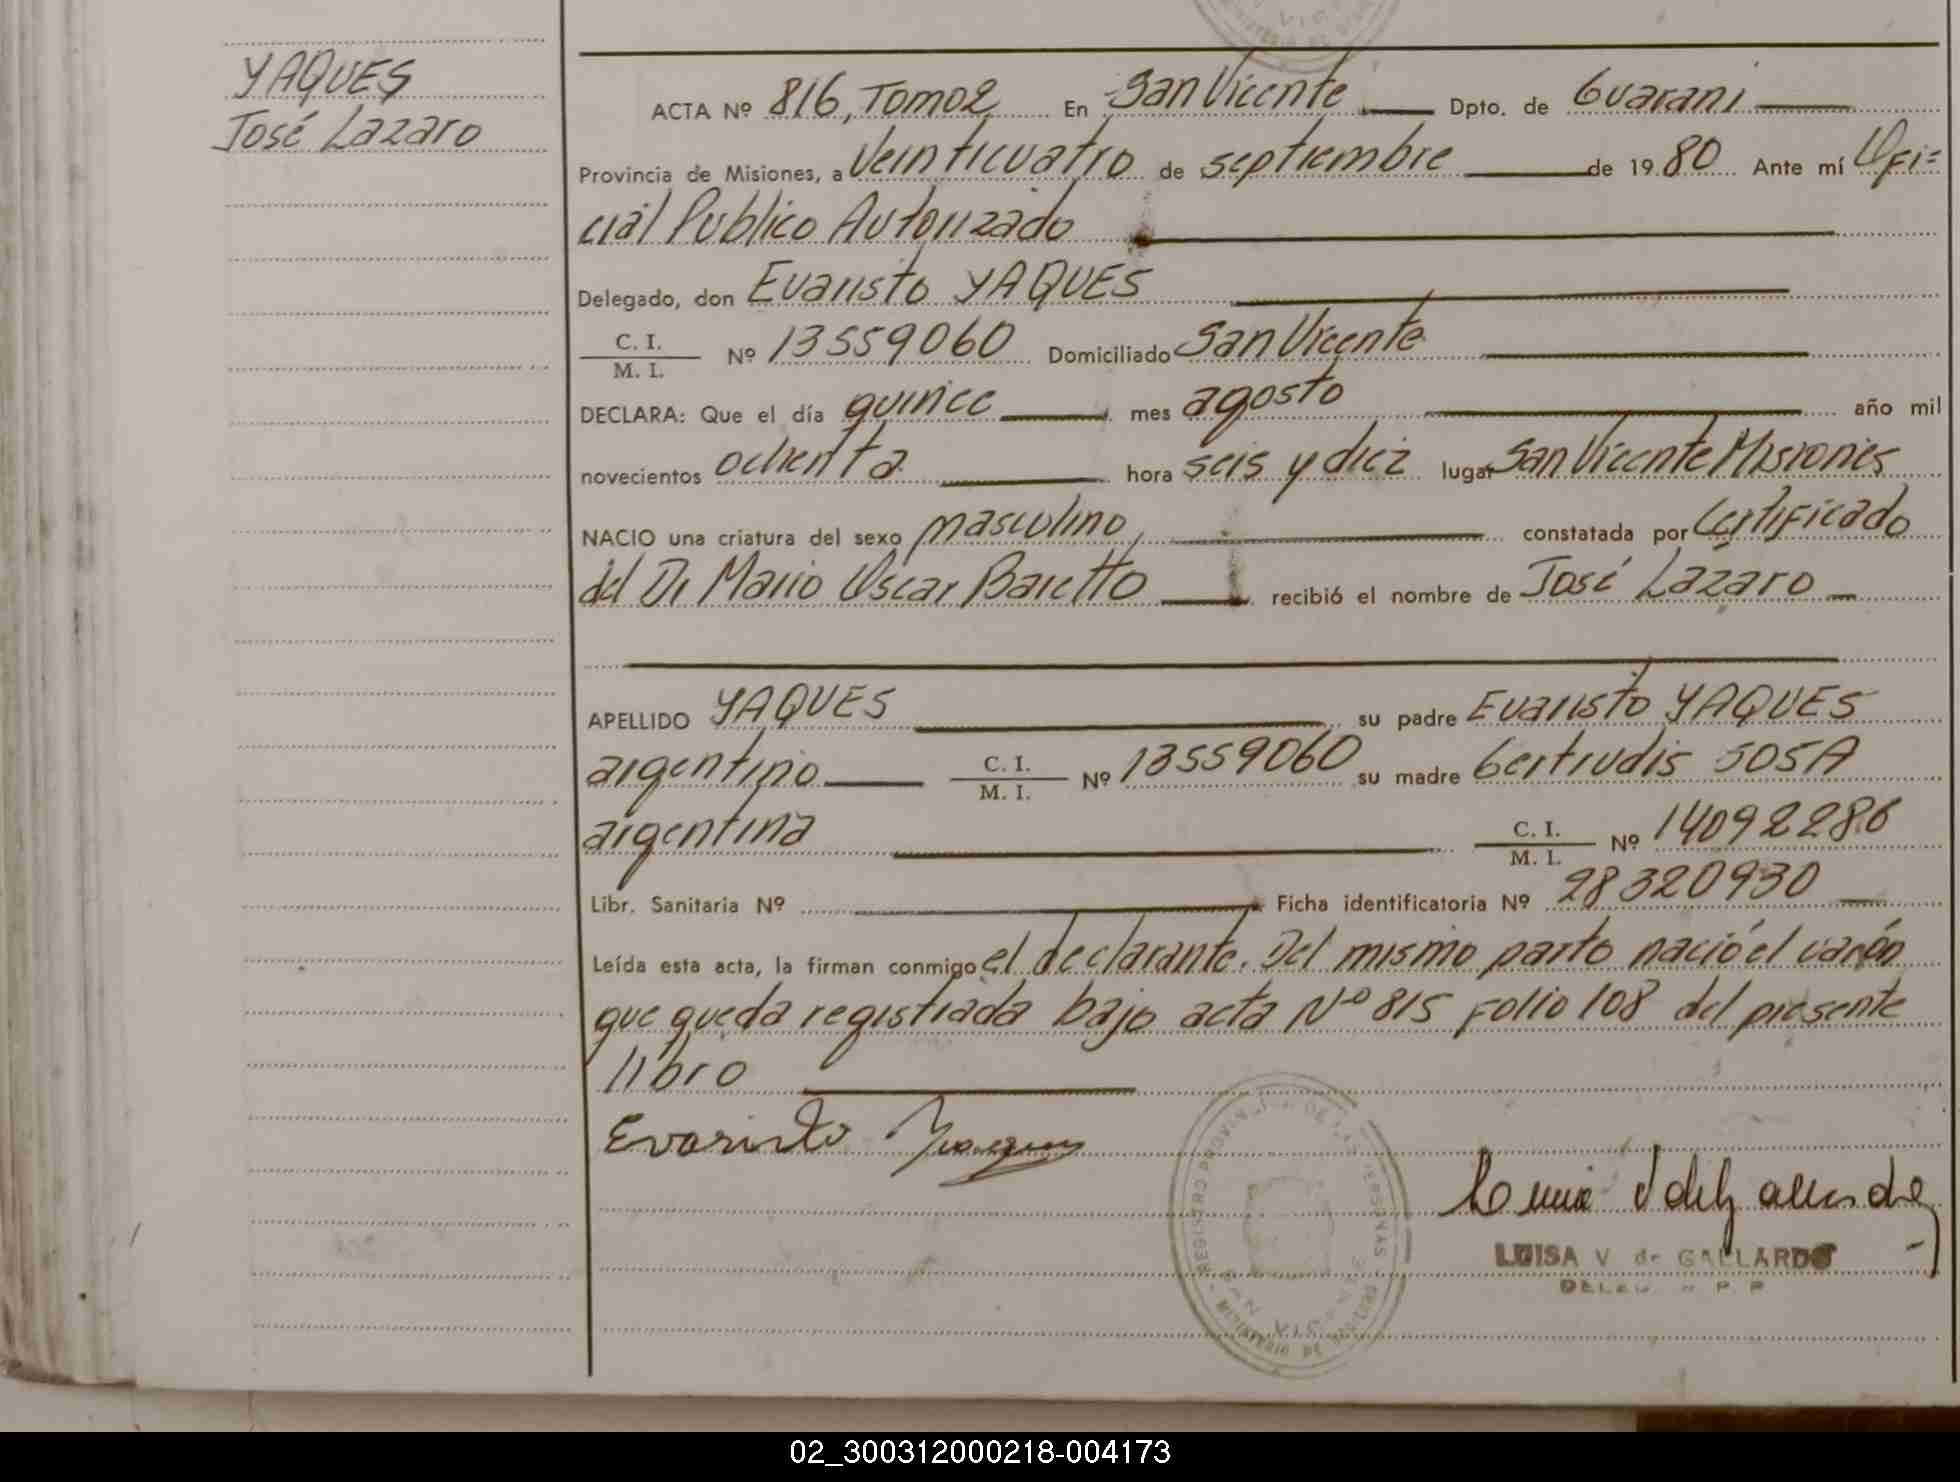 YAQUES
José Lazaro
ACTA Nº 816, Tomo 2 En San Vicente Dpto. de Guarani
Provincia de Misiones, a Veinticuatro de septiembre de 1980 Ante mí Ofi=
cial Publico Autorizado
Delegado, don Evaristo YAQUES
C. I.
M. I. Nº 13559060 Domiciliado San Vicente
DECLARA: Que el día quince mes agosto año mil
novecientos ochenta hora seis y diez lugar San Vicente Misiones
NACIO una criatura del sexo masculino, constatada por Certificado
del Dr Mario Oscar Baretto recibió el nombre de José Lázaro
APELLIDO YAQUES su padre Evaristo YAQUES
argentino C. I.
M. I. Nº 13559060 su madre Gertrudis SOSA
argentina C. I.
M. I. Nº 14092286
Libr. Sanitaria Nº Ficha identificatoria Nº 28320930
Leída esta acta, la firman conmigo el declarante. Del mismo parto nació el varón
que queda registrada bajo acta Nº 815 Folio 108 del presente
libro
Evaristo Yaques
LUISA V de GALLARDO
REGISTRO PROVIN DE LAS PERSONAS
MINISTERIO DE
02_300312000218-004173